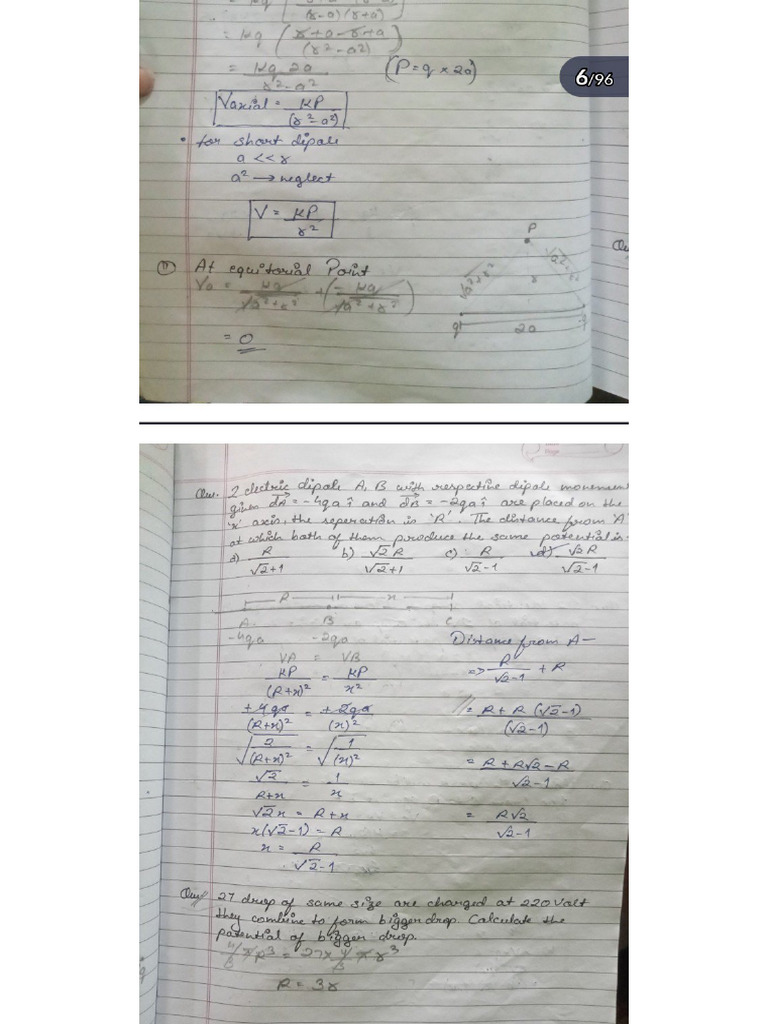 (r-a)(r+a)
= kq (r+a-r+a)
(r²-a²)
= kq 2a
r²-a²
(P = q × 2a)
6/96
Vaxial = KP
(r²-a²)
• for short dipole
a << r
a² → neglect
V = KP
r²
(ii) At equitorial Point
P
√a²+r²
√a²+r²
r
Va = kq + (-kq)
√a²+r² √a²+r²
q
2a
= 0
Que. 2 electric dipole A, B with respective dipole movement
given dA = -4qa î and dB = -2qa î are placed on the
'x' axis, the seperation is 'R'. The distance from 'A'
at which both of them produce the same potential is-
a) R b) √2R c) R d) √2R
√2+1 √2+1 √2-1 √2-1
R x
A B C
-4qa -2qa
Distance from A-
VA = VB
KP = KP
(R+x)² x²
⇒ R + R
√2-1
+4qa = +2qa
(R+x)² (x)²
= R + R(√2-1)
(√2-1)
√2 = √1
(R+x)² (x)²
= R + R√2 - R
√2-1
√2 = 1
R+x x
√2x = R+x
= R√2
√2-1
x(√2-1) = R
x = R
√2-1
Que 27 drop of same size are charged at 220 Volt
they combine to form bigger drop. Calculate the
potential of bigger drop.
4/3 πR³ = 27 × 4/3 π r³
R = 3r